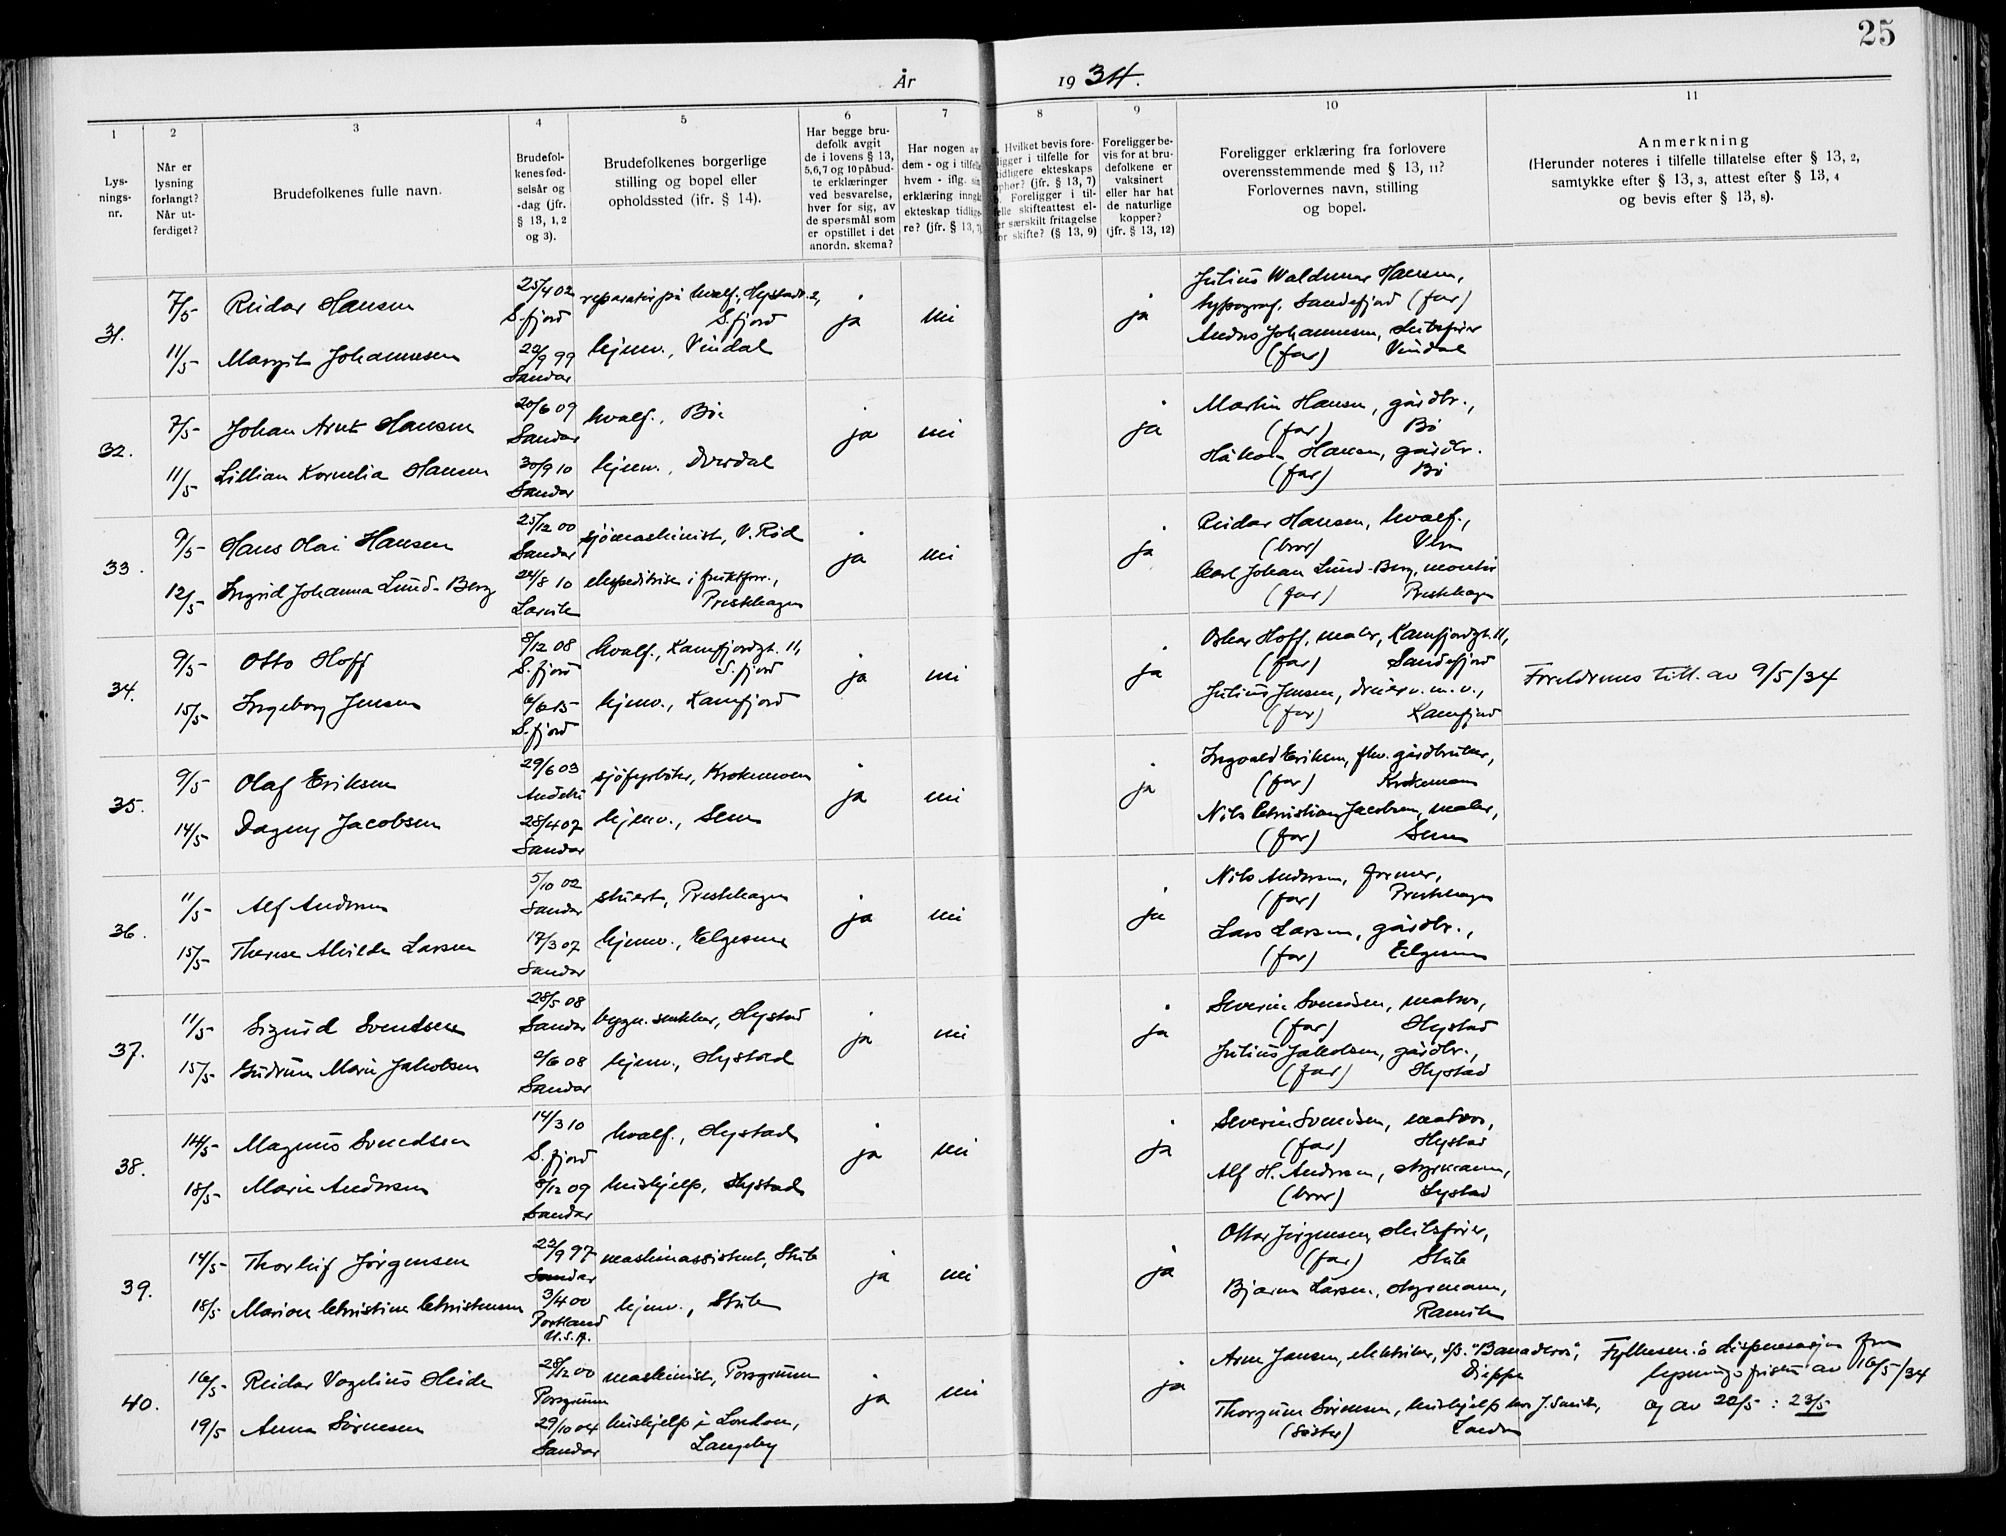 25
År 1934.
1
2
3
4
5
6
7
8
9
10
11
Lys-
nings-
nr.
Når er
lysning
forlangt?
Når ut-
ferdiget?
Brudefolkenes fulle navn.
Brudefol-
kenes fød-
selsår og
-dag (jfr.
§ 13, 1, 2
og 3).
Brudefolkenes borgerlige
stilling og bopel eller
opholdssted (jfr. § 14).
Har begge bru-
defolk avgit
de i lovens § 13,
5,6,7 og 10 påbud-
te erklæringer
ved besvarelse,
hver for sig, av
de spørsmål som
er opstillet i det
anordn. skema?
Har nogen av
dem - og i tilfelle
hvem - iflg. sin
erklæring inngått
ekteskap tidlige-
re? (jfr. § 13, 7)
Hvilket bevis fore-
ligger i tilfelle for
tidligere ekteskaps
ophør? (jfr. § 13, 7)
Foreligger i til-
felle skifteattest el-
ler særskilt fritagelse
for skifte? (§ 13, 9)
Foreligger be-
vis for at bru-
defolkene er
vaksinert
eller har hat
de naturlige
kopper?
(jfr. § 13, 12)
Foreligger erklæring fra forlovere
overensstemmende med § 13, 11?
Forlovernes navn, stilling
og bopel.
Anmerkning
(Herunder noteres i tilfelle tillatelse efter § 13, 2,
samtykke efter § 13, 3, attest efter § 13, 4
og bevis efter § 13, 8).
31.
7/5 Reidar Hansen 25/4 02 reparatør på hvalf., Hystadv. 2,
S.fjord S.fjord ja nei ja
11/5 Margit Johannesen 22/9 99 hjemv., Vindal
Sandar
Julius Waldemar Hansen,
typograf, Sandefjord (far)
Anders Johannesen, skibsfører
(far) Vindal
32.
7/5 Johan Arnt Hansen 20/6 09 hvalf., Bø
Sandar ja nei ja
11/5 Lillian Kornelia Hansen 30/9 10 hjemv., Dverdal
Sandar
Martin Hansen, gårdbr.,
(far) Bø
Håkon Hansen, gårdbr.
(far) Bø
33.
9/5 Hans Olai Hansen 25/12 00 sjømaskinist, V. Rød
Sandar ja nei ja
12/5 Ingrid Johanna Lund-Berg 24/8 10 ekspeditrise i fruktforr.,
Larvik Presthagen
Reidar Hansen, hvalf.,
(bror)
Carl Johan Lund-Berg, montør
(far) Presthagen
34.
9/5 Otto Hoff 8/12 08 hvalf., Kamfjordgt. 11,
S.fjord S.fjord ja nei ja
15/5 Ingeborg Jensen 6/6 15 hjemv., Kamfjord
S.fjord
Oskar Hoff, maler, Kamfjordgt. 11,
(far) Sandefjord
Julius Jensen, dreier v. m. v.,
(far) Kamfjord
Foreldrenes till. av 9/5/34
35.
9/5 Olaf Eriksen 29/6 03 sjøfyrbøter, Krokemoen
Andebu ja nei ja
14/5 Dagny Jacobsen 28/4 07 hjemv., Sem
Sandar
Ingvald Eriksen, fhv. gårdbruker,
(far) Krokemoen
Nils Christian Jacobsen, maler,
(far) Sem
36.
11/5 Alf Andersen 5/10 02 stuert, Presthagen
Sandar ja nei ja
15/5 Therese Alvilde Larsen 17/3 07 hjemv., Elgesem
Sandar
Nils Andersen, former,
(far) Presthagen
Lars Larsen, gårdbr.,
(far) Elgesem
37.
11/5 Sigurd Svendsen 28/5 08 bygn. snekker, Hystad
Sandar ja nei ja
15/5 Gudrun Marie Jakobsen 2/6 08 hjemv., Hystad
Sandar
Severin Svendsen, matros,
(far) Hystad
Julius Jakobsen, gårdbr.,
(far) Hystad
38.
14/5 Magnus Svendsen 14/3 10 hvalf., Hystad
S.fjord ja nei ja
18/5 Marie Andersen 8/12 09 hushjelp, Hystad
Sandar
Severin Svendsen, matros,
(far) Hystad
Alf H. Andersen, styrmann,
(bror) Lystad
39.
14/5 Thorleif Jørgensen 22/9 97 maskinassistent, Stub
Sandar ja nei ja
18/5 Marion Christine Christensen 3/4 00 hjemv., Stub
Portland
U.S.A.
Ottar Jørgensen, skibsfører,
(far) Stub
Bjarne Larsen, styrmann,
Ramvik
40.
16/5 Reidar Vogelius Heide 28/12 00 maskinist, Porsgrunn
Porsgrunn ja nei ja
19/5 Anna Sørensen 29/10 04 hushjelp i London,
Sandar Langeby
Arne Jansen, elektriker, s/s. "Banaderos",
Dieppe
Thorgunn Sørensen, hushjelp hos J. Smith,
(søster) London
Fylkesm.s dispensasjon fra
lysningsfristen av 16/5/34
og av 22/5 : 23/5